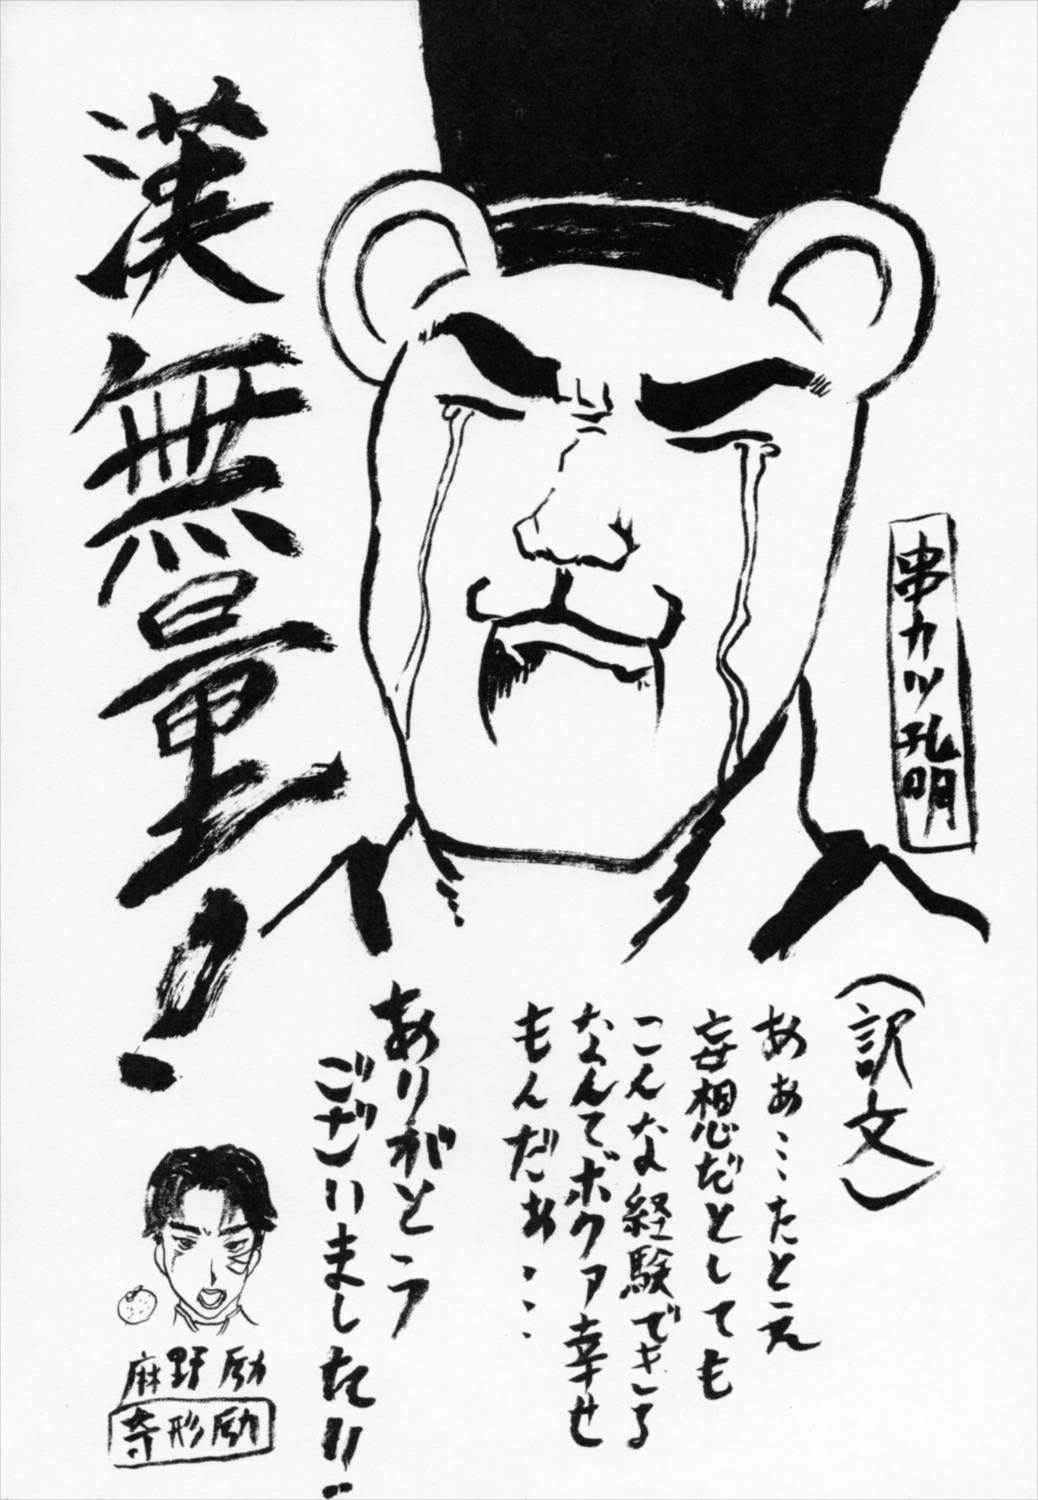 漢無量!
串カツ孔明
(訳文)
ああ…たとえ
妄想だとしても
こんな経験できる
なんてボクァ幸せ
もんだぁ・・・
ありがとう
ございました!!
麻野励
寺形励